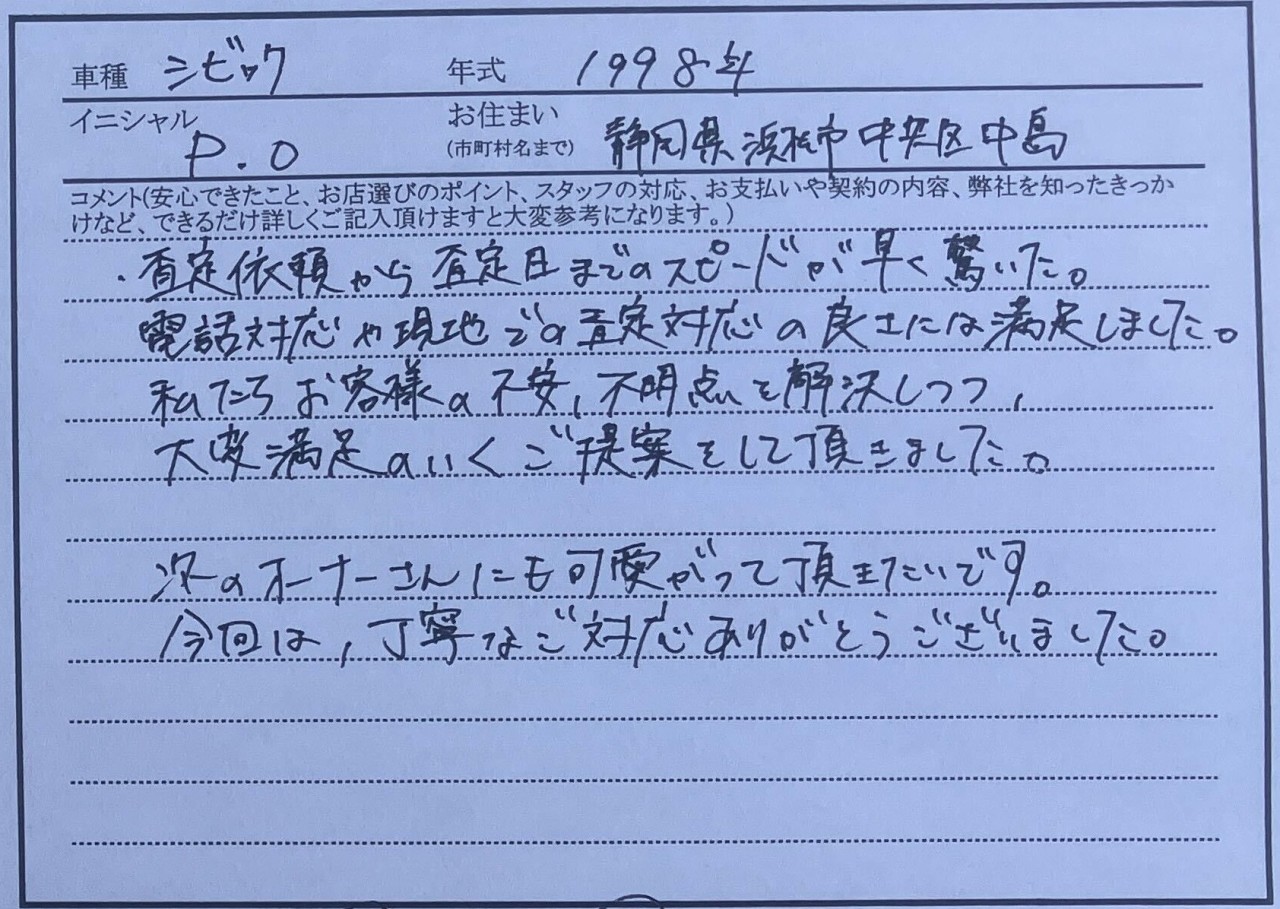 車種 シビック 年式 1998年
イニシャル P.O お住まい (市町村名まで) 静岡県浜松市中央区中島
コメント(安心できたこと、お店選びのポイント、スタッフの対応、お支払いや契約の内容、弊社を知ったきっか
けなど、できるだけ詳しくご記入頂けますと大変参考になります。)
・査定依頼から査定日までのスピードが早く驚いた。
電話対応や現地での査定対応の良さには満足しました。
私たちお客様の不安、不明点を解決しつつ、
大変満足のいくご提案をして頂きました。
次のオーナーさんにも可愛がって頂きたいです。
今回は、丁寧なご対応ありがとうございました。